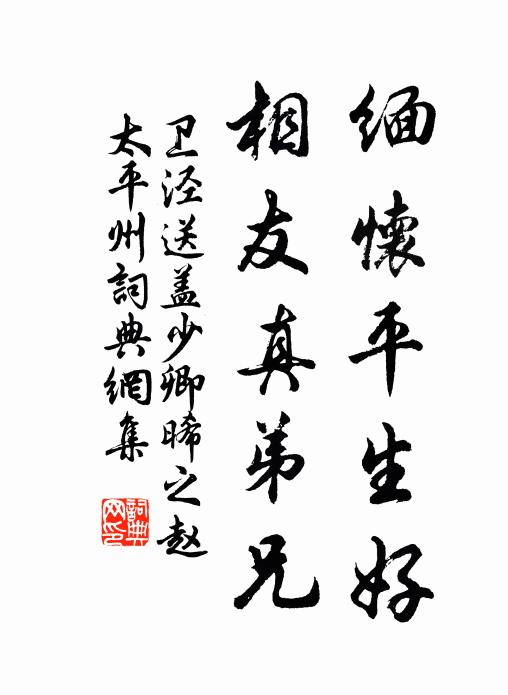 緬懷平生好
相友真弟兄
卫泾送盖少卿晞之赵
太平州詞典網集
詞典网印